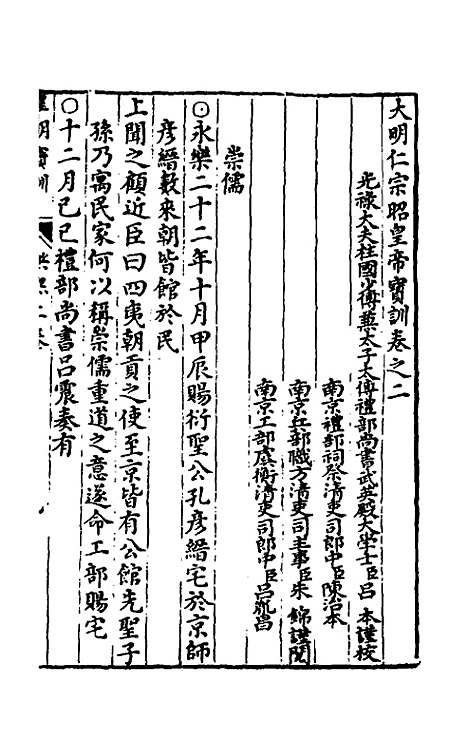 大明仁宗昭皇帝寶訓卷之二
光祿大夫柱國少傅兼太子太傅禮部尚書武英殿大學士臣呂 本謹校
南京禮部祠祭清吏司郎中臣陳治本
南京兵部職方清吏司主事臣朱 錦謹閱
南京工部虞衡清吏司郎中臣呂胤昌
崇儒
○永樂二十二年十月甲辰賜衍聖公孔彥縉宅於京師
彥縉數來朝皆館於民
上聞之顧近臣曰四夷朝貢之使至京皆有公館先聖子
孫乃寓民家何以稱崇儒重道之意遂命工部賜宅
○十二月己巳禮部尚書呂震奏有
皇明寶訓 洪熙二卷